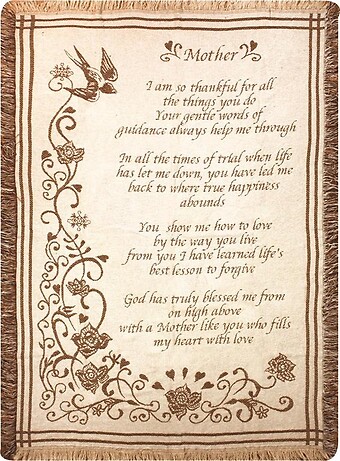 Mother
I am so thankful for all
the things you do
Your gentle words of
guidance always help me through
In all the times of trial when life
has let me down, you have led me
back to where true happiness
abounds
You show me how to love
by the way you live
from you I have learned life's
best lesson to forgive
God has truly blessed me from
on high above
with a Mother like you who fills
my heart with love